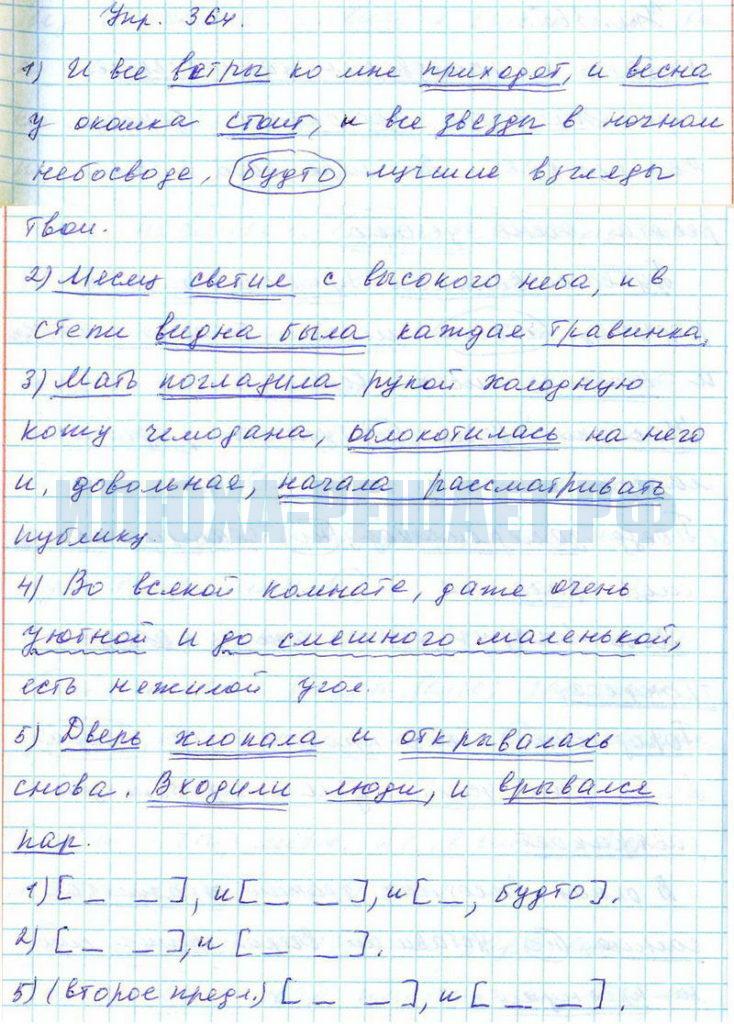 Упр. 364.
1) И все ветры ко мне приходят, и весна
у окошка стоит, и все звезды в ночном
небосводе, будто лучшие взгляды
твои.
2) Месяц светил с высокого неба, и в
степи видна была каждая травинка.
3) Мать погладила рукой холодную
кожу чемодана, облокотилась на него
и, довольная, начала рассматривать
публику.
ИЛЮХА-РЕШАЕТ.РФ
4) Во всякой комнате, даже очень
уютной и до смешного маленькой,
есть нежилой угол.
5) Дверь хлопала и открывалась
снова. Входили люди, и врывался
пар.
1) [_ _], и [_ _], и [_, будто].
2) [_ _], и [_ _].
5) (второе предл.) [_ _], и [_ _].